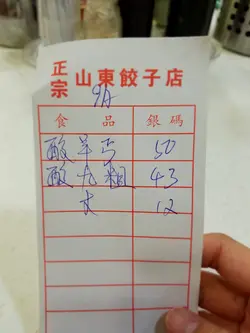 正宗山東餃子店
9A
食品 銀碼
酸羊丐 50
酸九粗 43
水 12